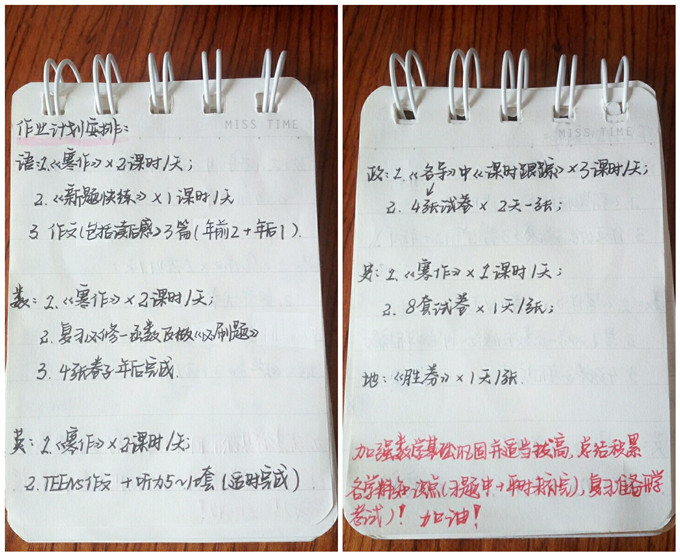 MISS TIME
作业计划安排:
语:1.《寒作》×2课时1天;
2.《新题快练》×1课时1天
3.作文(包括读后感)3篇(年前2+年后1).
数:1.《寒作》×2课时1天;
2.复习必修一函数及做《必刷题》
3.4张卷子年后完成.
英:1.《寒作》×2课时1天;
2.TEENS作文+听力5~10套(适时完成)
MISS TIME
政:1.《各导》中《课时跟踪》×3课时1天;
2.4张试卷×2天一张;
历:1.《寒作》×1课时1天;
2.8套试卷×1天1张;
地:《胜券》×1天1张.
加强数学基础巩固并适当拔高,总结积累
各学科知识点(习题中+平时未消),复习准备开学
考试)!加油!